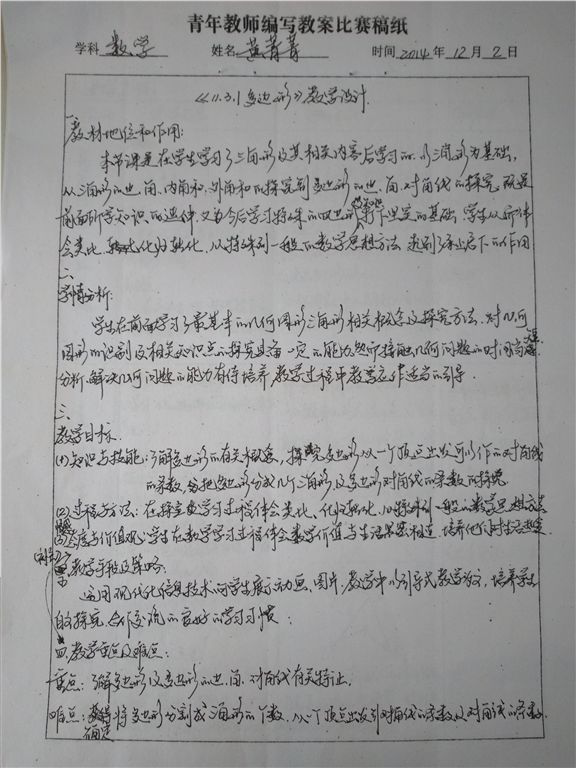 青年教师编写教案比赛稿纸
学科 数学 姓名 黄菁菁 时间 2014 年 12 月 2 日
《11.3.1多边形》教学设计
一、
教材地位和作用:
本节课是在学生学习了三角形及其相关内容后学习的.以三角形为基础,
从三角形的边、角、内角和、外角和的探究到多边形的边、角、对角线的探究.既是
前面所学知识的延伸,又为今后学习特殊的四边形等知识打下坚定的基础.学生从中体
会类比、转化化归转化、从特殊到一般的数学思想方法.起到了承上启下的作用
二、
学情分析:
学生在前面学习了最基本的几何图形三角形相关概念及探究方法.对几何
图形的识别及相关知识点的探究具备一定的能力.但所接触几何问题的时间尚短
分析、解决几何问题的能力有待培养.教学过程中教者应作适当的引导.
三、
教学目标.
(1)知识与技能:了解多边形的有关概念,探究多边形从一个顶点出发可以作的对角线
的条数,会把多边形分成几个三角形,及多边形对角线的条数的探究.
(2)过程与方法:在探究与学习过程体会类比、化归转化、从特殊到一般的数学思想方法
(3)情感态度与价值观:学生在数学学习过程体会数学价值与生活紧密相连.培养他们对生活热爱.
教学手段及策略:
运用现代化信息技术向学生展示动画、图片.教学中以引导式教学为主,培养学生
自的探究、合作交流的良好的学习习惯.
四、教学重点及难点:
重点:了解多边形及多边形的边、角、对角线有关特征.
难点:确定将多边形分割成三角形的个数.从一个顶点出发引对角线的条数及对角线的条数.